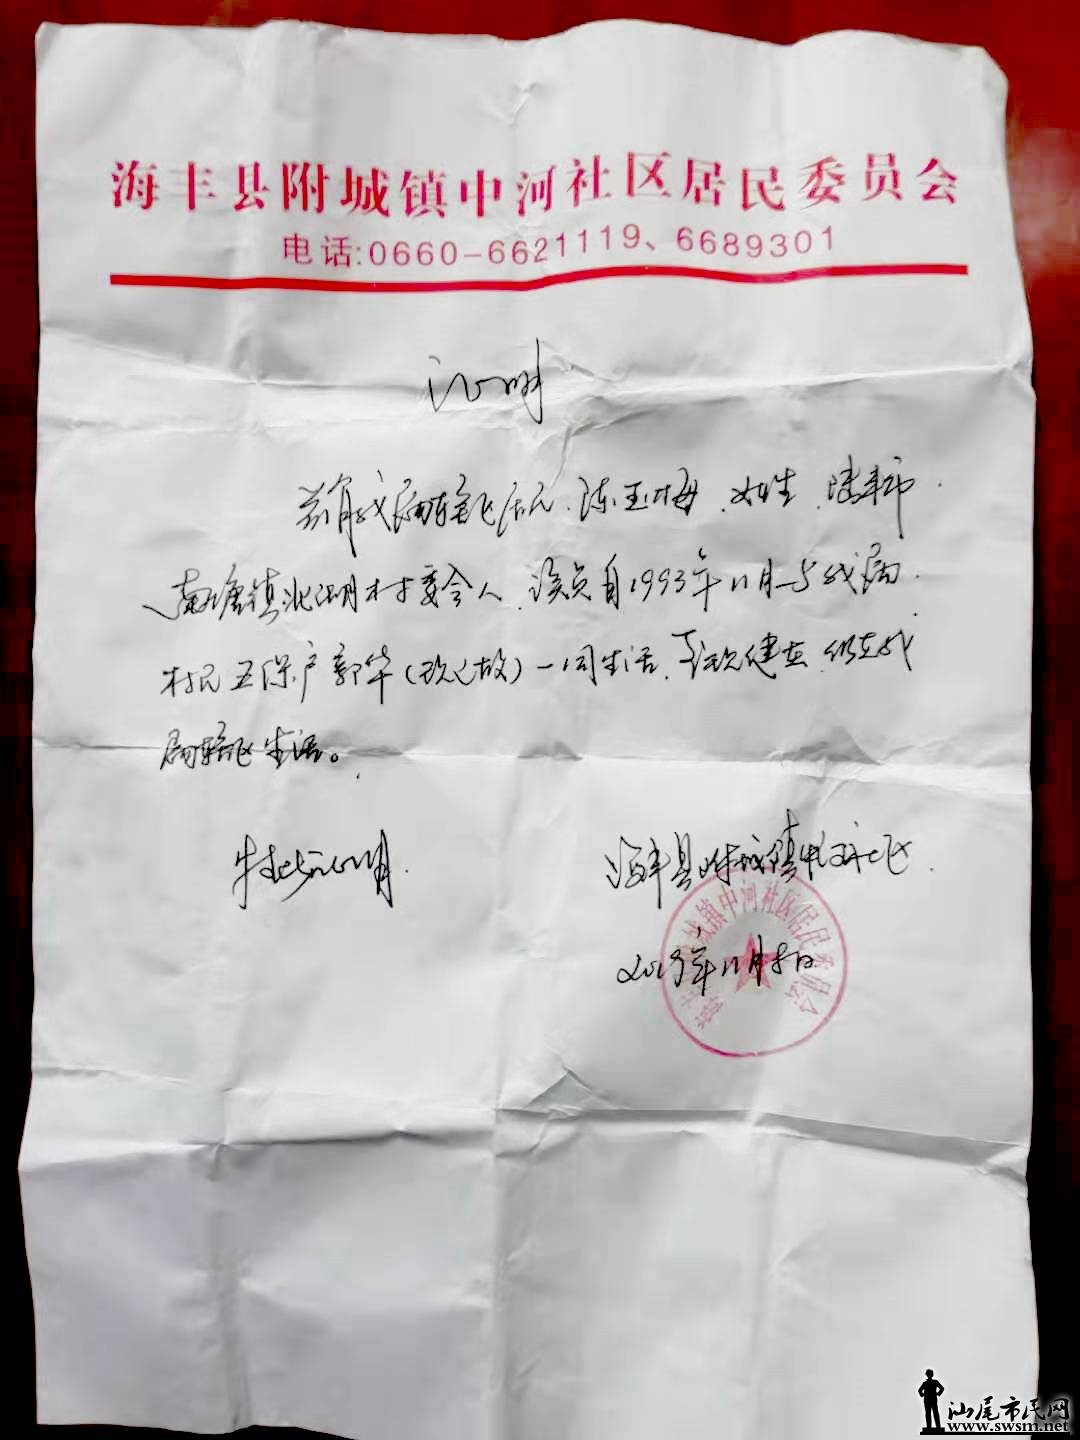 海丰县附城镇中河社区居民委员会
电话:0660-6621119、6689301
证明
兹有我局辖区居民陈玉梅、女性、陆丰市
南塘镇北湖村委会人,该员自1993年11月与我局
村民五保户郭华(现已故)一同生活,至现健在,仍在我
局辖区生活。
特此证明
海丰县附城镇中河社区
2019年11月8日
城镇中河社区居民委员会
汕尾市民网
www.swsm.net